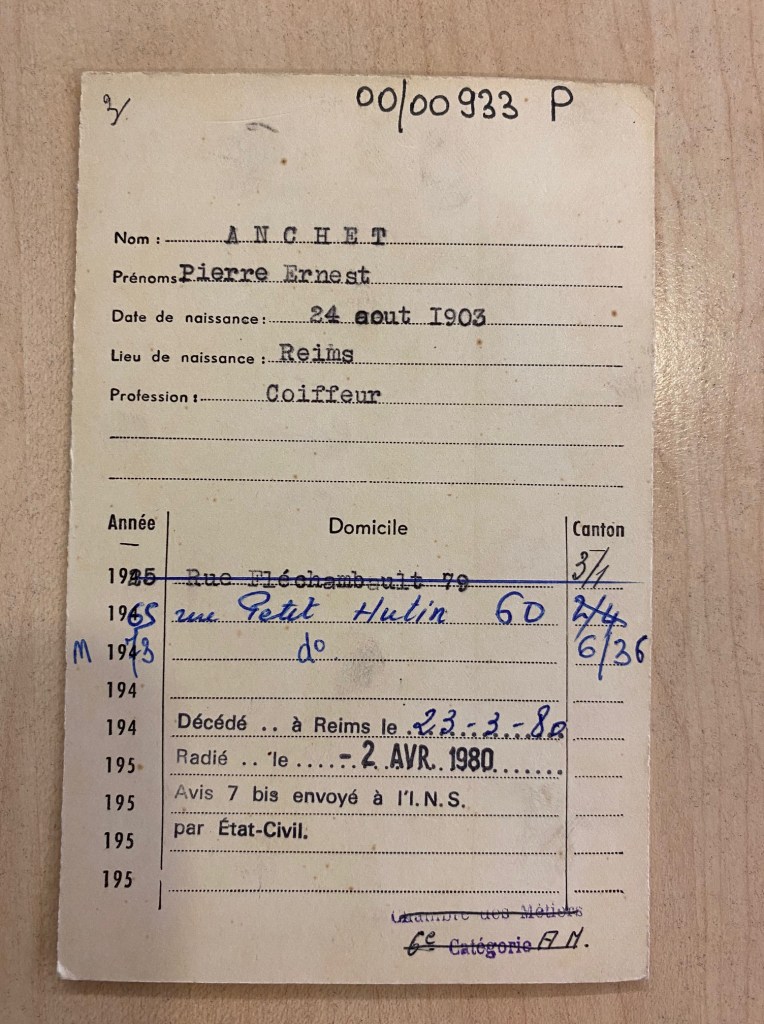 00/00933 P
Nom : ANCHET
Prénoms Pierre Ernest
Date de naissance : 24 aout I903
Lieu de naissance : Reims
Profession : Coiffeur
Année Domicile Canton
Rue Fléchambault 79 3/1
1965 rue Petit Hutin 60 2/4
M 1973 do 6/36
194
194 Décédé .. à Reims le 23-3-80
195 Radié .. le - 2 AVR. 1980
195 Avis 7 bis envoyé à l'I.N.S.
195 par État-Civil.
195
Chambre des Métiers
6e Catégorie A M.